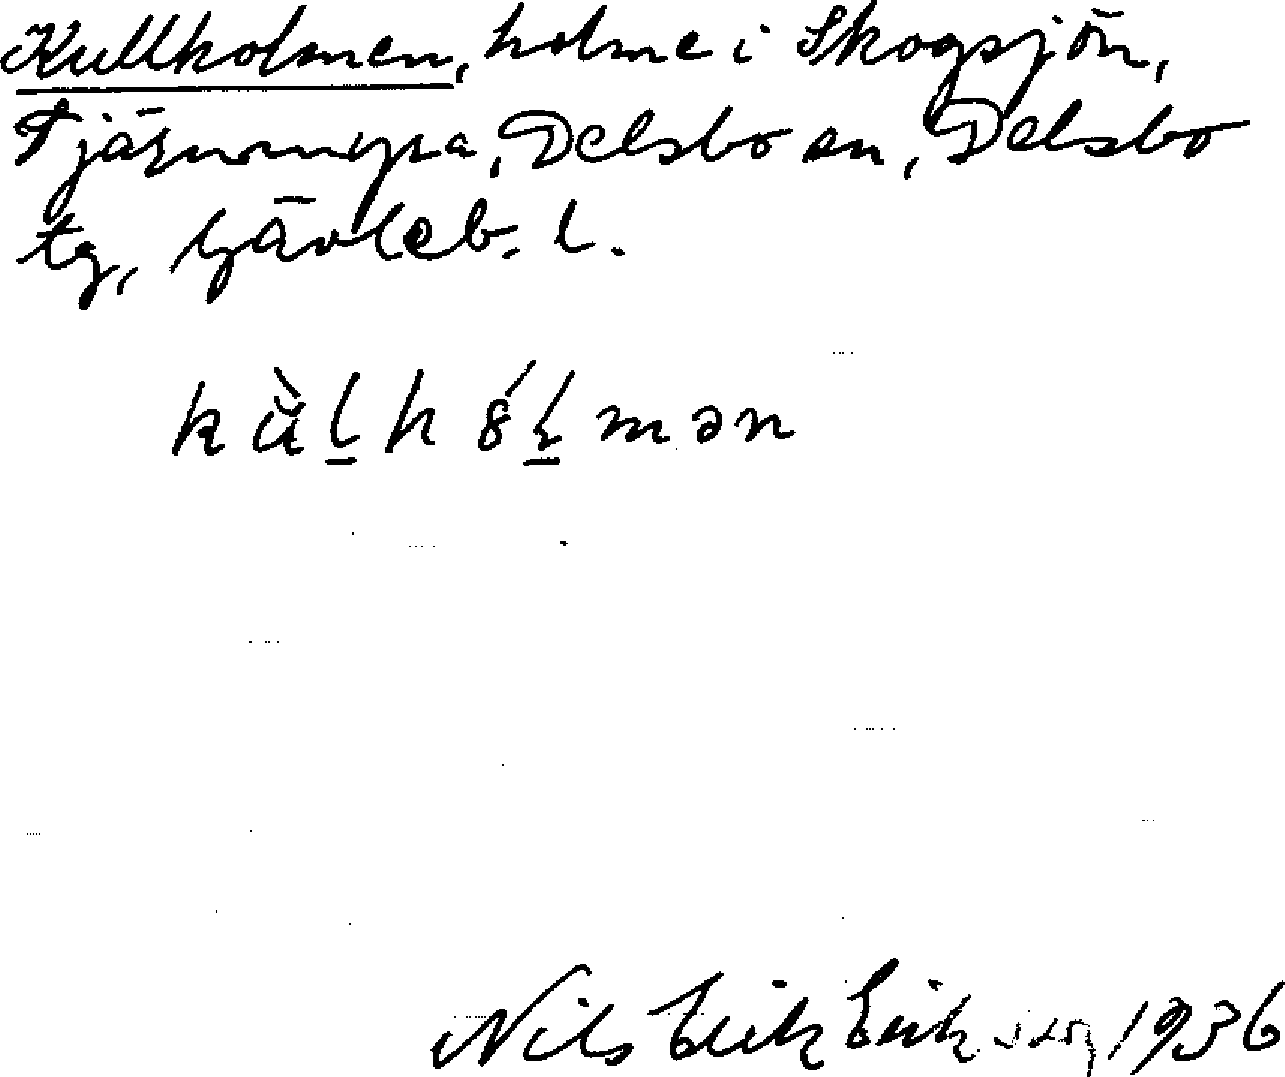 Kullholmen, holme i Skogsjön,
Tjärnmyra, Delsbo sn, Delsbo
tg, Gävleb. l.
kùl̲hóɽ̲mən
Nils Erik Eriksson 1936